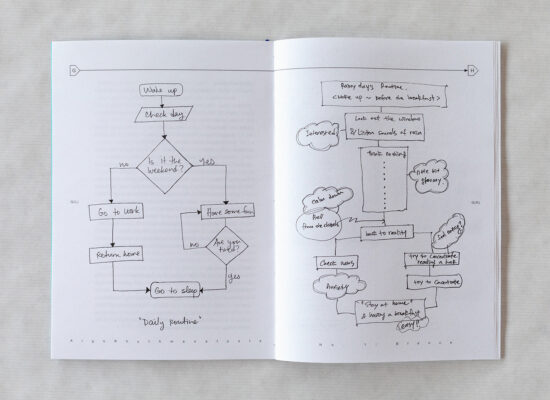 G
H
Wake up
Check day
Is it the
weekend?
no
yes
Go to work
Have some fun
no
Are you
tired?
Return home
yes
Go to sleep
"Daily Routine"
Rainy day's Routine.
<Wake up ~ before the breakfast>
Look out the window
& Listen sounds of rain
Interested
think nothing
calm down
back to reality
Check news
try to concentrate
reading a book
Anxiety
try to concentrate
"Stay at home"
& having a breakfast
(easy?)